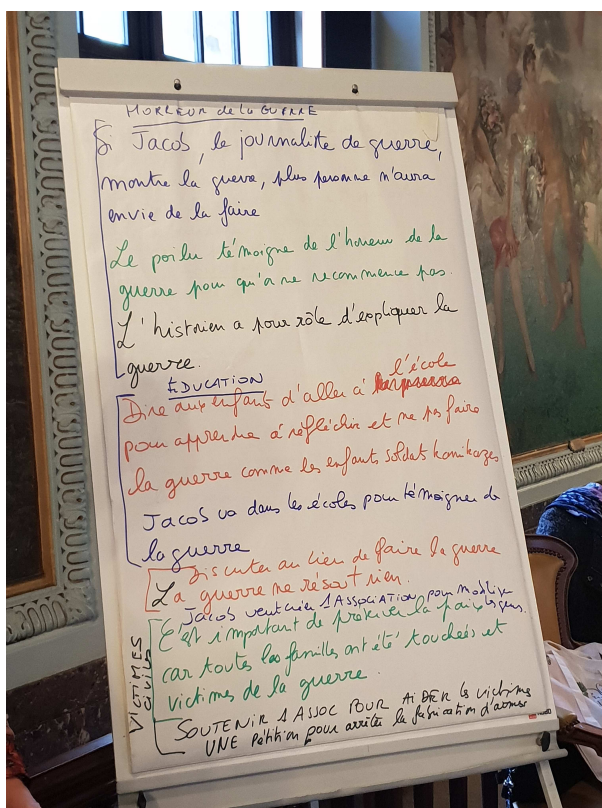 HORREUR de la GUERRE
Si Jacob, le journaliste de guerre,
montre la guerre, plus personne n'aura
envie de la faire
Le poilu témoigne de l'horreur de la
guerre pour qu'on ne recommence pas.
L'historien a pour rôle d'expliquer la
guerre.
EDUCATION
Dire aux enfants d'aller à l'école
pour apprendre à réfléchir et ne pas faire
la guerre comme les enfants soldats kamikazes
Jacob va dans les écoles pour témoigner de
la guerre
Discuter au lieu de faire la guerre
La guerre ne résout rien.
Jacob veut créer 1 ASSOCIATION pour mobiliser
les gens.
C'est important de préserver la paix
car toutes les familles ont été touchées et
victimes de la guerre.
VICTIMES
civiles
SOUTENIR 1 ASSOC POUR AIDER les victimes
UNE Pétition pour arrêter la fabrication d'armes